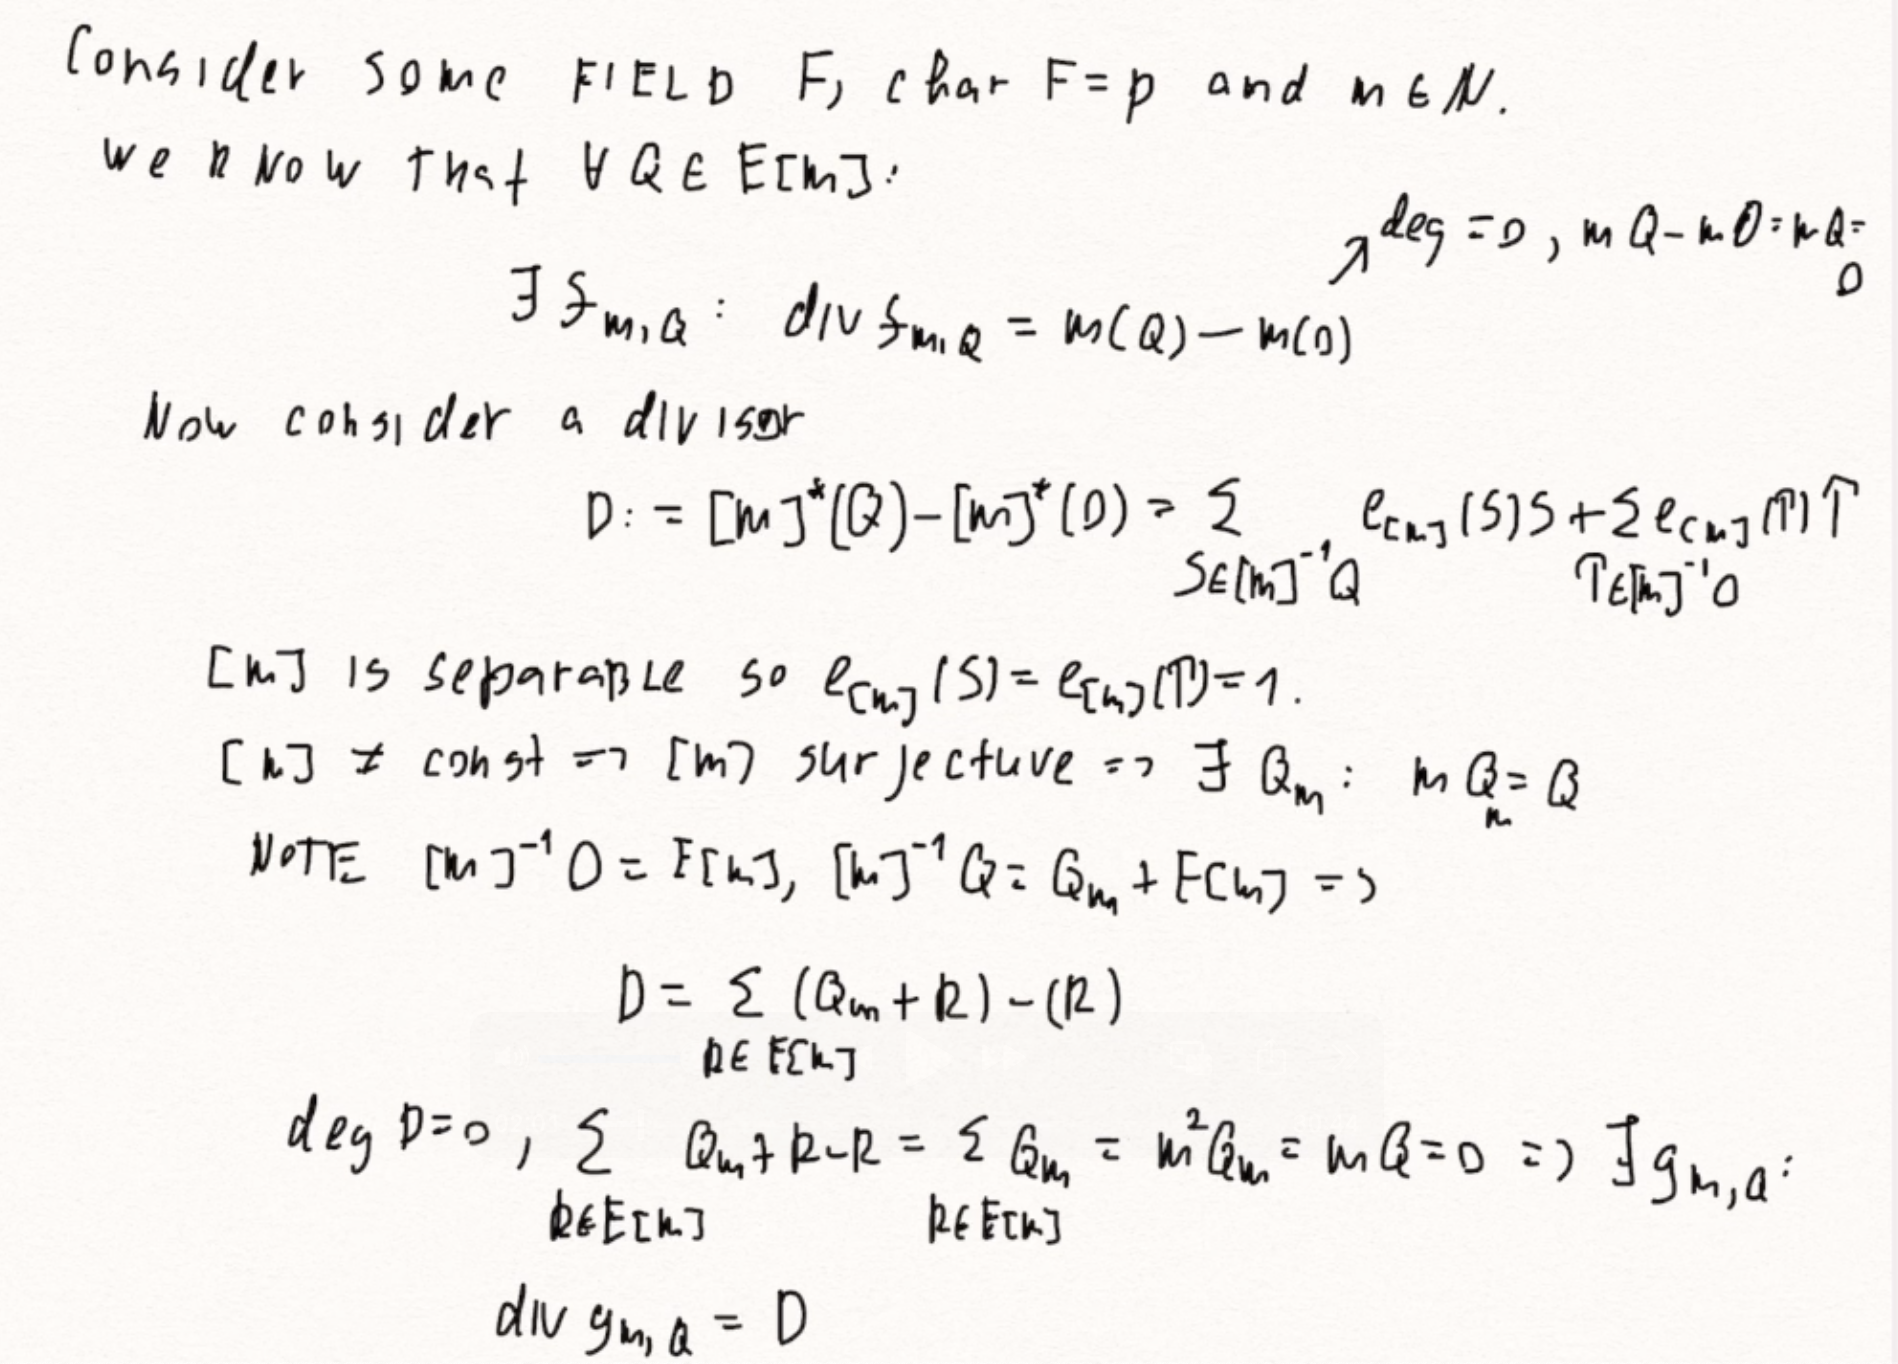 Consider some FIELD F, char F = p and m ∈ N.
we know that ∀ Q ∈ E[m]:
↗ deg = 0, mQ - mO = mQ = O
∃ f_{m,Q} : div f_{m,Q} = m(Q) - m(O)
Now consider a divisor
D: = [m]*(Q) - [m]*(O) = Σ_{S∈[m]^{-1}Q} e_{[m]}(S)S + Σ_{T∈[m]^{-1}O} e_{[m]}(T)T
[m] is separable so e_{[m]}(S) = e_{[m]}(T) = 1.
[m] ≠ const => [m] surjecture => ∃ Q_m : mQ_m = Q
NOTE [m]^{-1}O = E[m], [m]^{-1}Q = Q_m + E[m] =>
D = Σ_{R∈E[m]} (Q_m + R) - (R)
deg D = 0, Σ_{R∈E[m]} Q_m + R - R = Σ_{R∈E[m]} Q_m = m²Q_m = mQ = O => ∃ g_{m,Q} :
div g_{m,Q} = D